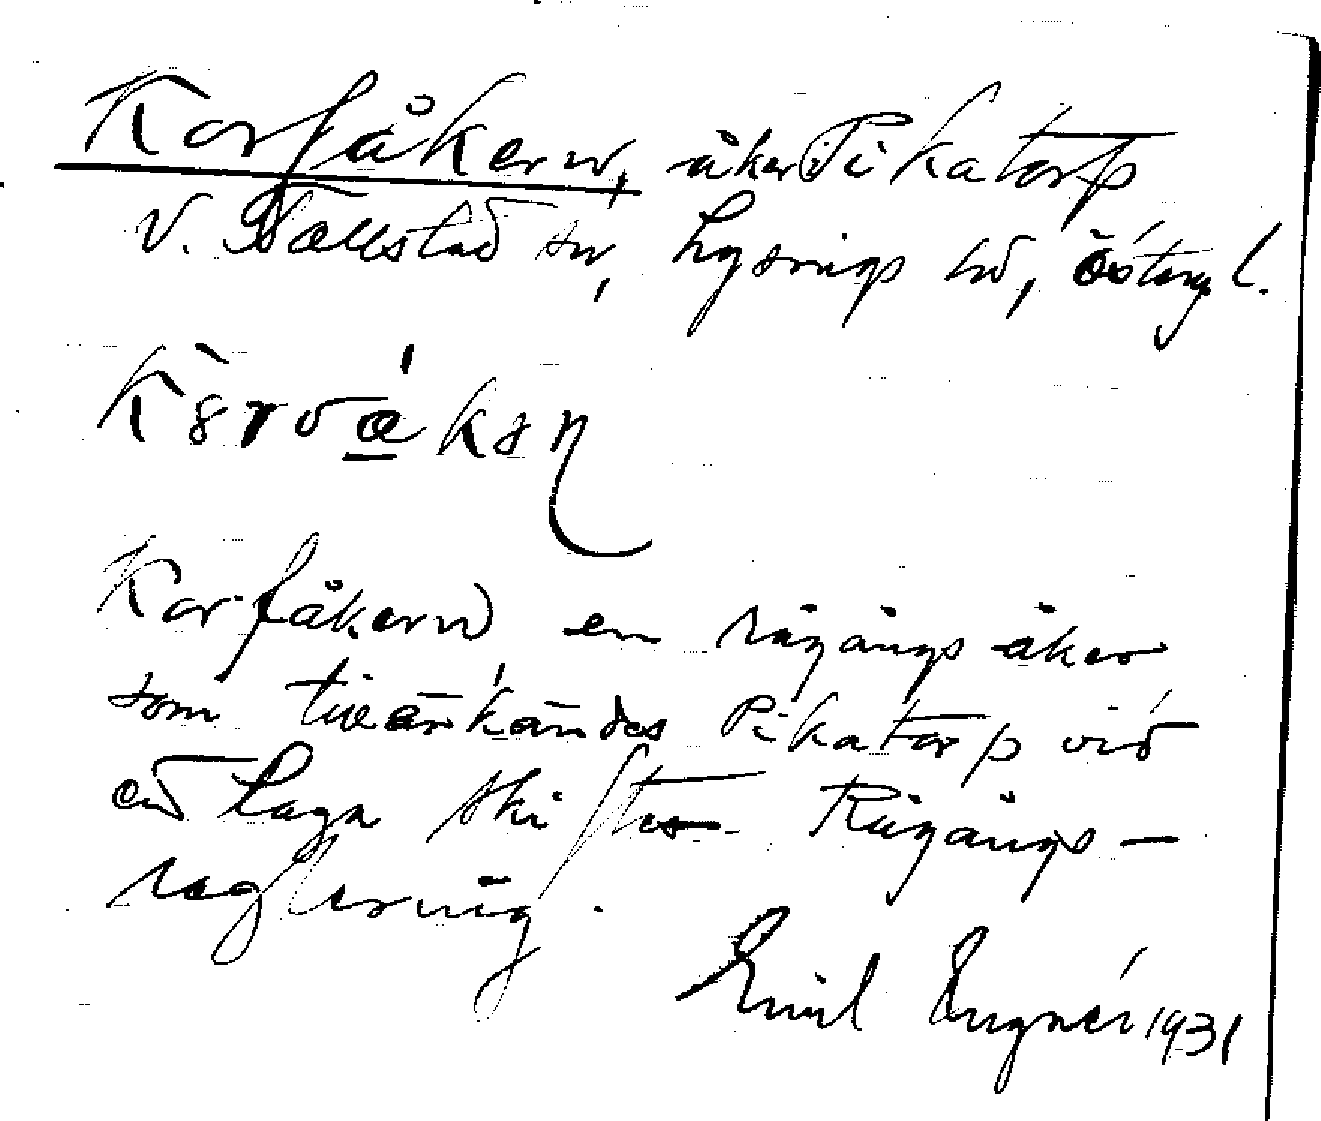 Korfåkern, åker i Pikatorp
V. Tollstad sn, Lysings hd, Östergl.
Korfåkern en rågångsåker
som tillerkändes Pikatorp vid
ed Laga skiftes Rågångs-
reglering.
Emil Engnér 1931